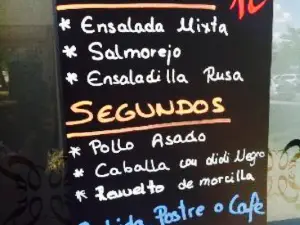 * Ensalada Mixta
* Salmorejo
* Ensaladilla Rusa
SEGUNDOS
* Pollo Asado
* Caballa con Negro
* Revuelto de morcilla
Postre o Café